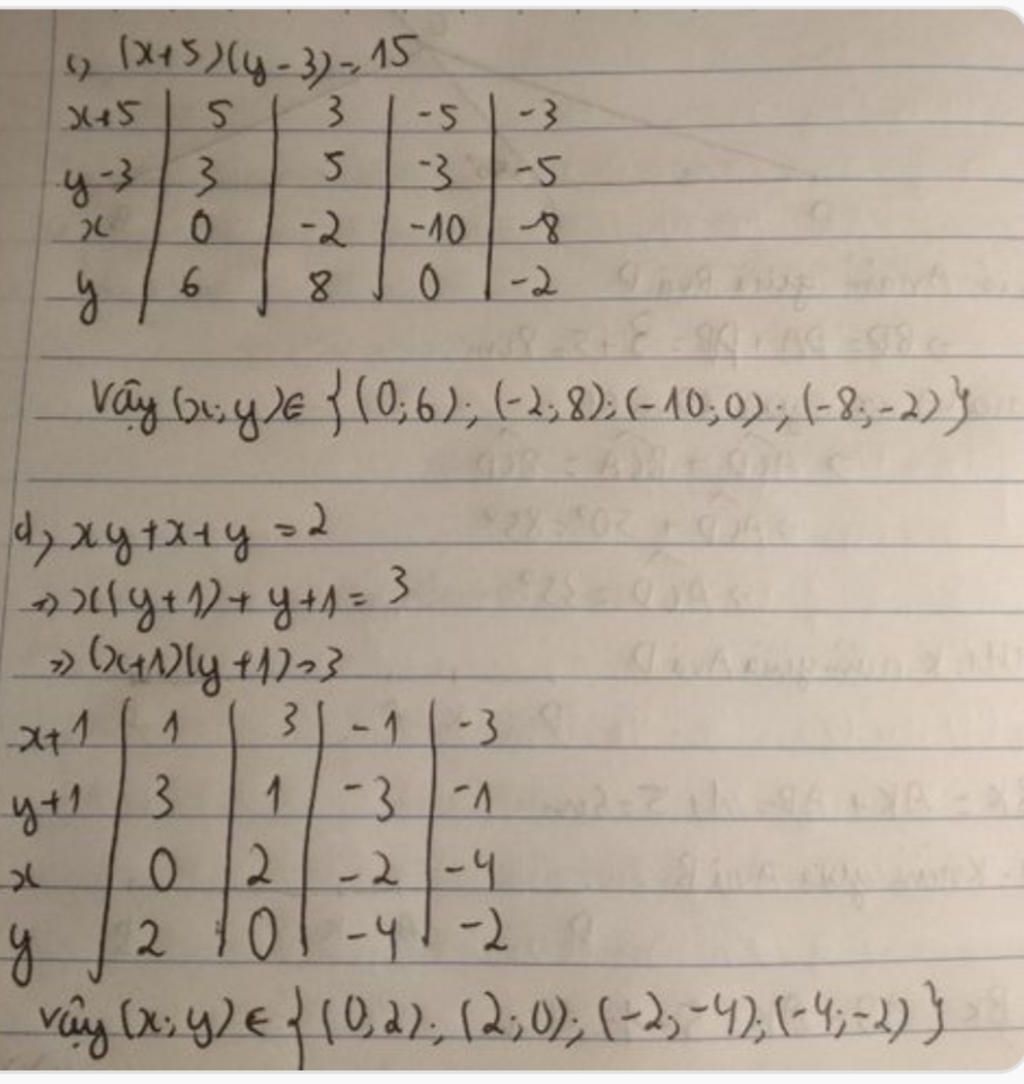 c) (x+5)(y-3)=15
x+5 | 5 | 3 | -5 | -3
y-3 | 3 | 5 | -3 | -5
x | 0 | -2 | -10 | -8
y | 6 | 8 | 0 | -2
Vậy (x;y)∈ {(0;6); (-2;8); (-10;0); (-8;-2)}
d, xy+x+y = 2
=> x(y+1)+ y+1= 3
=> (x+1)(y+1)=3
x+1 | 1 | 3 | -1 | -3
y+1 | 3 | 1 | -3 | -1
x | 0 | 2 | -2 | -4
y | 2 | 0 | -4 | -2
vậy (x;y) ∈ {(0,2); (2;0); (-2;-4); (-4;-2)}